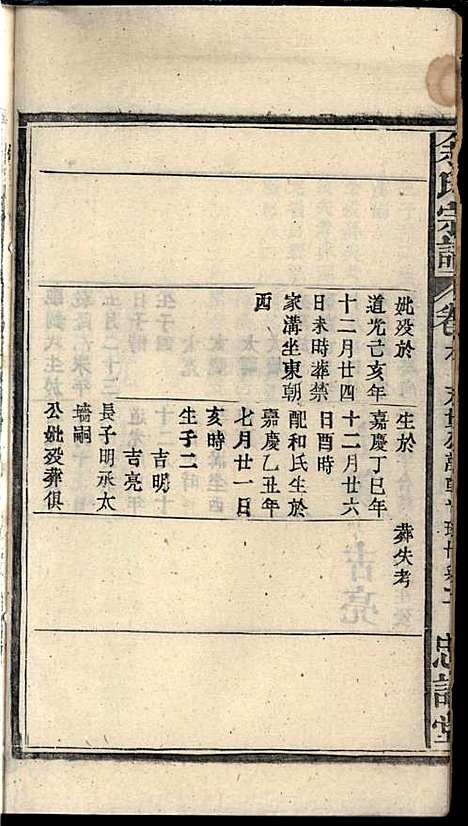 余氏宗譜
卷
忠誥堂
妣歿於
道光己亥年
十二月廿四
日未時葬禁
家溝坐東朝
西
生於
嘉慶丁巳年
十二月廿六
日酉時
配和氏生於
嘉慶乙丑年
七月廿一日
亥時
生子二
吉明
吉亮
長子明承太
墻嗣
公妣歿葬俱
葬失考